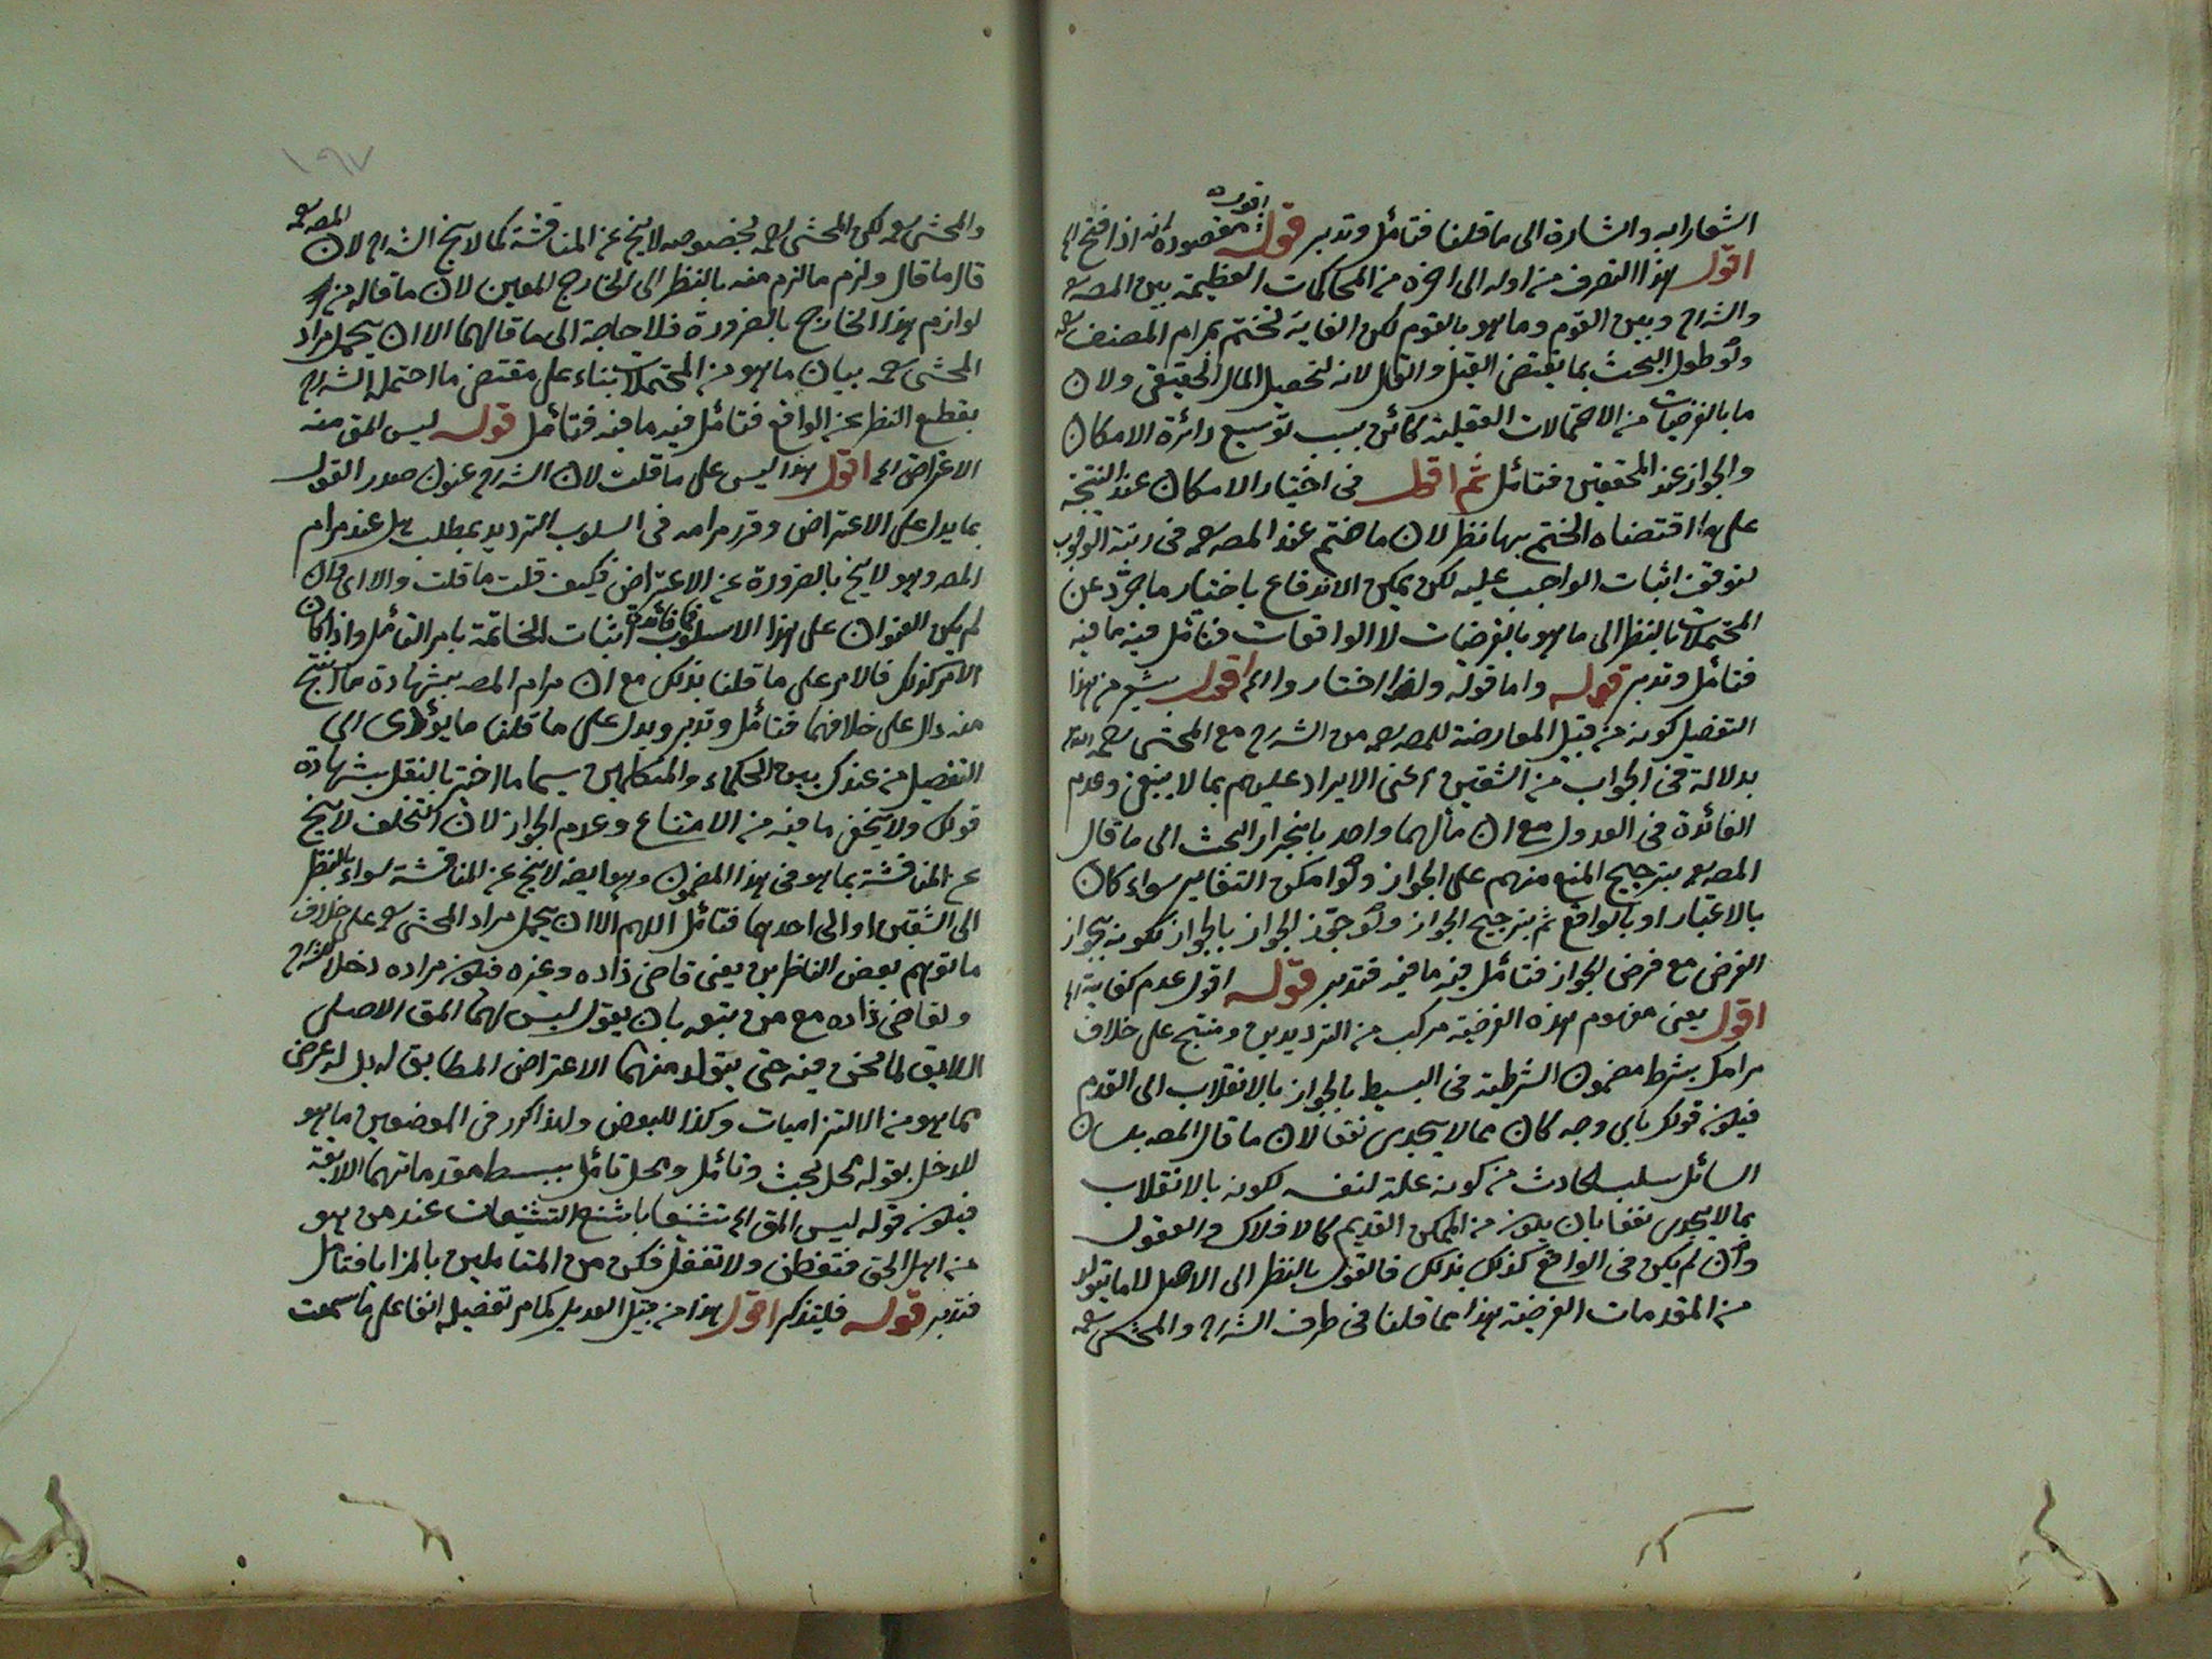 اشعارا به واشارة الى ما قلنا فتأمل وتدبر قوله مقصوده انه اذا فتح الخ
اقول هذا التصرف من اوله الى اخره من المحاكمات العظيمة بين المصه
والشارح وبين القوم وما هو بالقوم لكن الغاية تختتم بمرام المصنف
ولو طول البحث بما يقتضى القيل والقال لانه لتحصيل المال الحقيقى ولان
ما بالفرضيات من الاحتمالات العقلية كائن بسبب توسيع دائرة الامكان
والجواز عند المحققين فتأمل ثم اقول فى اختيار الامكان عند النتيجة
على ما اقتضاه الختم بها نظر لان ما ختم عند المصه فى رتبة الوجوب
لتوقف اثبات الواجب عليه لكن يمكن الاندفاع باختيار ما جرد عن
المحتملات بالنظر الى ما هو بالفرضيات لا الواقعات فتأمل فيه ما فيه
فتأمل وتدبر قوله واما قوله ولذا اختاروا الخ اقول يشعر من هذا
التفصيل كونه من قبيل المعارضة للمصه من الشارح مع المحشى رحمه الله
بدلالة فى الجواب من الشقين اعنى الايراد عليهم بما لا ينبغى وعدم
الفائدة فى العدول مع ان مألهما واحد بانجرار البحث الى ما قال
المصه بترجيح المنع منهم على الجواز ولو امكن التغاير سواء كان
بالاعتبار او بالواقع ثم بترجيح الجواز ولو جوز الجواز بالجواز لكونه بجواز
الفرض مع فرض الجواز فتأمل فيه ما فيه فتدبر قوله اقول عدم كفاية الخ
اقول يعنى مفهوم هذه الفرضية مركب من الترديدين ومنتج على خلاف
مرامك بشرط مضمون الشرطية فى البسيط بالجواز بالانقلاب الى القدم
فيكون قولك باى وجه كان مما لا يجدى نفعا لان ما قال المصه بلسان
السائل سلب الحادث من كونه علة لنفسه لكونه بالانقلاب
بما لا يجدى نفعا بان يكون من الممكن القديم كالافلاك والعقول
وان لم يكن فى الواقع كذلك بذلك فالقول بالنظر الى الاصل لا ما يتولد
من المقدمات الفرضية هذا مما قلنا فى طرف الشارح والمحشى
١٩٧
والمحشى لكن المحشى بخصوصه لا ينج عن المناقشة كما لا ينج الشارح لان المصه
قال ما قال ولزم ما لزم منه بالنظر الى الخارج المعين لان ما قاله من
لوازم هذا الخارج بالضرورة فلا حاجة الى ما قالهما الا ان يحمل مراد
المحشى بيان ما هو من المحتملات بناء على مقتضى ما احتمل الشارح
بقطع النظر عن الواقع فتأمل فيه ما فيه فتأمل قوله ليس المق منه
الاعتراض الخ اقول هذا ليس على ما قلت لان الشارح عنون صدر القول
بما يدل على الاعتراض وقرر مرامه فى اسلوب الترديد بمطلب هل عند مرام
المصه وهو لا ينج بالضرورة عن الاعتراض فكيف قلت ما قلت والا اى وان
لم يكن العنوان على هذا الاسلوب فما فائدة اثبات الخاتمة بامر التأمل واذا كان
الامر كذلك فالامر على ما قلنا بذلك مع ان مرام المصه بشهادة ما انتج
منه دال على خلافهما فتأمل وتدبر ويدل على ما قلنا ما يؤدى الى
التفصيل من عندك بين الحكماء والمتكلمين سيما ما اختير بالنقل بشهادة
قولك ولا يخفى ما فيه من الامتناع وعدم الجواز لان التخلف لا ينج
عن المناقشة بما هو فى هذا المضمون وهو ايضا لا ينج عن المناقشة سواء بالنظر
الى الشقين او الى احدهما فتأمل اللهم الا ان يحمل مراد المحشى على خلاف
ما توهم بعض الناظرين يعنى قاضى زاده وغيره فيكون مراده دخل الشارح
ولقاضى زاده مع من يتبعه بان يقول ليس لهما المق الاصلى
اللايق لما نحن فيه حتى يتولد منهما الاعتراض المطابق له بل له عرض
بما هو من الالتزاميات وكذا للبعض ولهذا كرر فى الموضعين ما هو
للدخل بقوله محل بحث وتأمل ومحل تأمل ببسط مقدماتهما اللايقة
فيكون قوله ليس المق الخ تشنيعا باشنع التشنيعات عند من هو
من اهل الحق فتفطن ولا تغفل فكن من المتاملين بالمزايا فتأمل
فتدبر قوله فليتذكر اقول هذا من قبيل العديل بما مر تفصيله انفا على ما سمعت